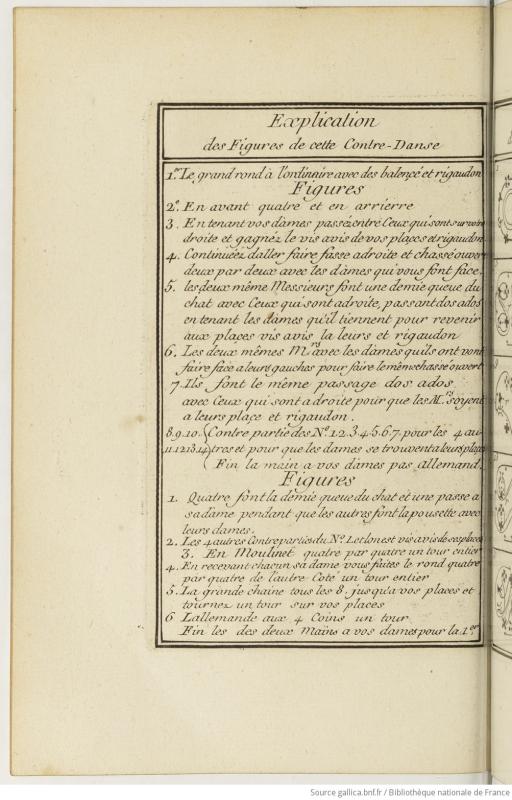 Explication
des Figures de cette Contre-Danse
1.re Le grand rond à l'ordinnire avec des balençé et rigaudon
Figures
2e. En avant quatre et en arrierre
3. En tenant vos dames passé entré Ceux qui sont sur votre
droite et gagnéz le vis avis de vos plaçes et rigaudon
4. Continuéez daller faire fasse adroite et chassé ouvert
deux par deux avec les dames qui vous font face.
5. les deux même Messieurs font une demie queue du
chat avec Ceux qui sont adroite, passant dos ados
en tenant les dames qu'il tiennent pour revenir
aux places vis avis la leurs et rigaudon
6. Les deux mêmes Mrs avec les dames quils ont vont
faire face a leurs gauches pour faire le même chassé ouvert
7. Ils font le même passage dos ados
avec Ceux qui sont a droite pour que les Mrs soyent
a leurs plaçe et rigaudon.
8.9.10. Contre partie des No. 1.2.3.4.5.6.7. pour les 4 au-
11.12.13.14 tres et pour que les dames se trouvent a leurs plaçe
Fin la main a vos dames pas allemand.
Figures
1. Quatre font la demie queue du chat et une passe a
sa dame pendant que les autres font la pousette avec
leurs dames.
2. Les 4 autres Contreparties du No. 1. et lon est vis avis de ses places
3. En Moulinet quatre par quatre un tour entier
4. En recevant chacun sa dame vous faites le rond quatre
par quatre de l'autre Coté un tour entier
5. La grande chaine tous les 8. jusqu'a vos places et
tournez un tour sur vos places
6 Lallemande aux 4 Coins un tour
Fin les des deux Mains a vos dames pour la 1.er
Source gallica.bnf.fr / Bibliothèque nationale de France